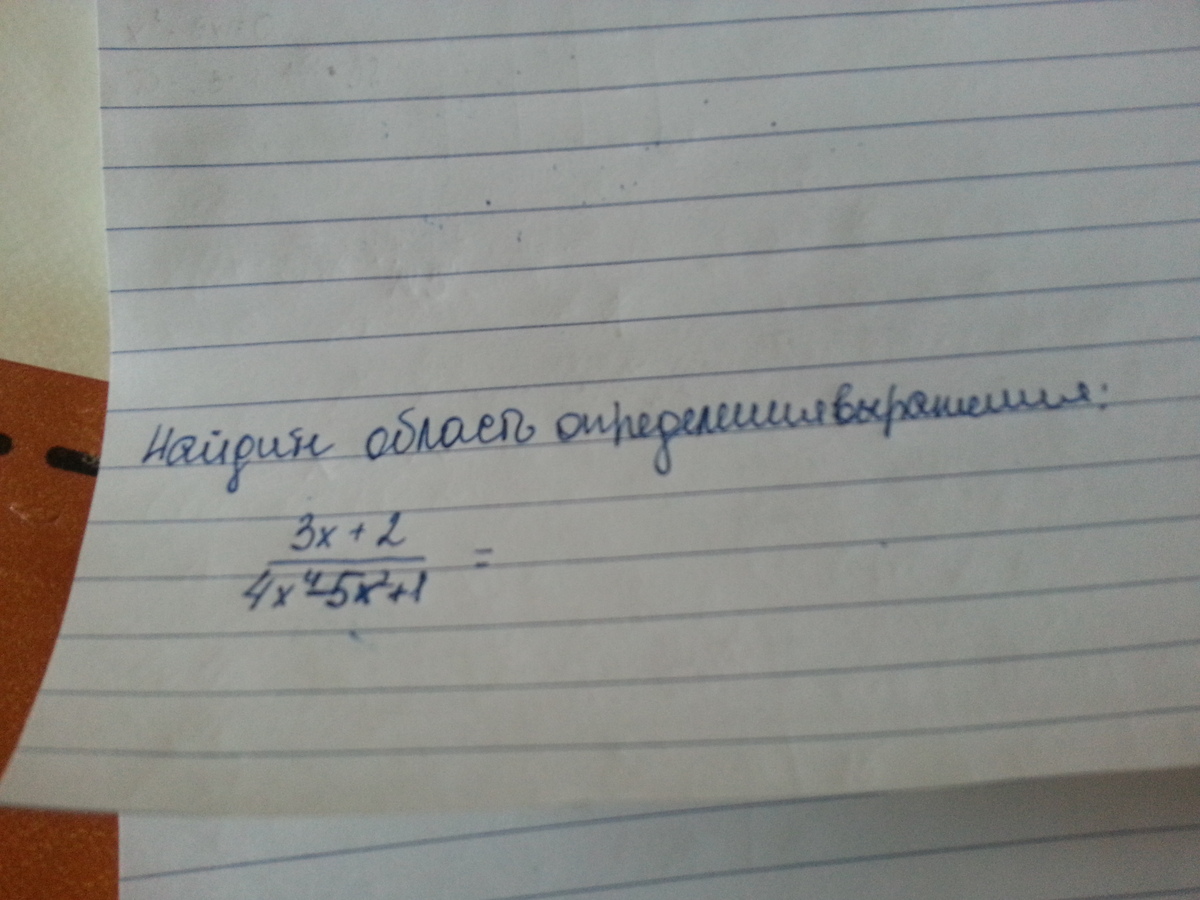 Найдите область определения выражения:
3x + 2
4x⁴-5x²+1 =